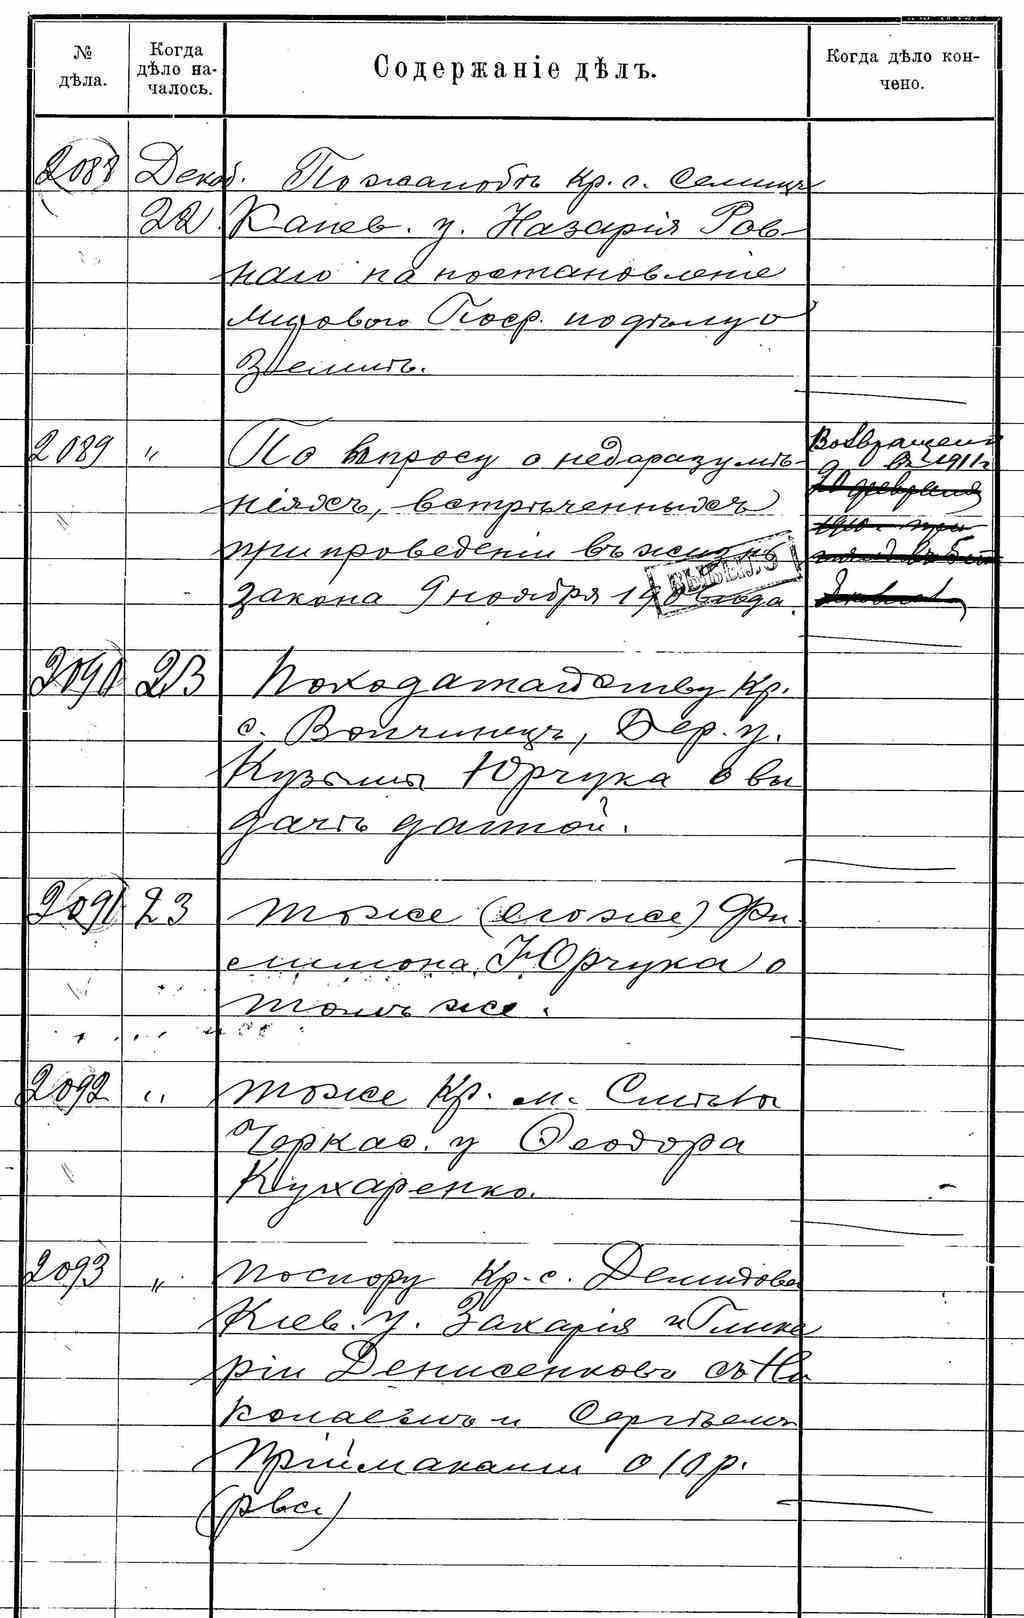 № дѣла.
Когда дѣло началось.
Содержаніе дѣлъ.
Когда дѣло кончено.
2088 Декаб. По жалобѣ кр. с. Селищъ
22. Канев. у. Назарія Ров-
наго на постановленіе
Мирового Поср. по дѣлу о
Землѣ.
2089 " По вопросу о недоразумѣ-
ніяхъ, встрѣченныхъ
при проведеніи въ жизнь
закона 9 ноября 190 года.
Возвращено
въ 1911 г
20 февраля
1910 г. при
ВЫБЫЛО
2090 23 По ходатайству Кр.
с. Волчинецъ, Лер. у.
Кузьмы Юрчука о вы
дачѣ данной.
2091 23 тоже (тогоже) Фи-
лимона Юрчука о
томъ же.
2092 " тоже Кр. м. Смѣлы
Черкас. у Ѳеодора
Кухаренко.
2093 " по спору Кр. с. Демидова
Кіев. у. Захарія и Глике
ріи Денисенковъ съ Ни
колаемъ и Сергѣемъ
Приймаками о 10 р.
(рвс.)